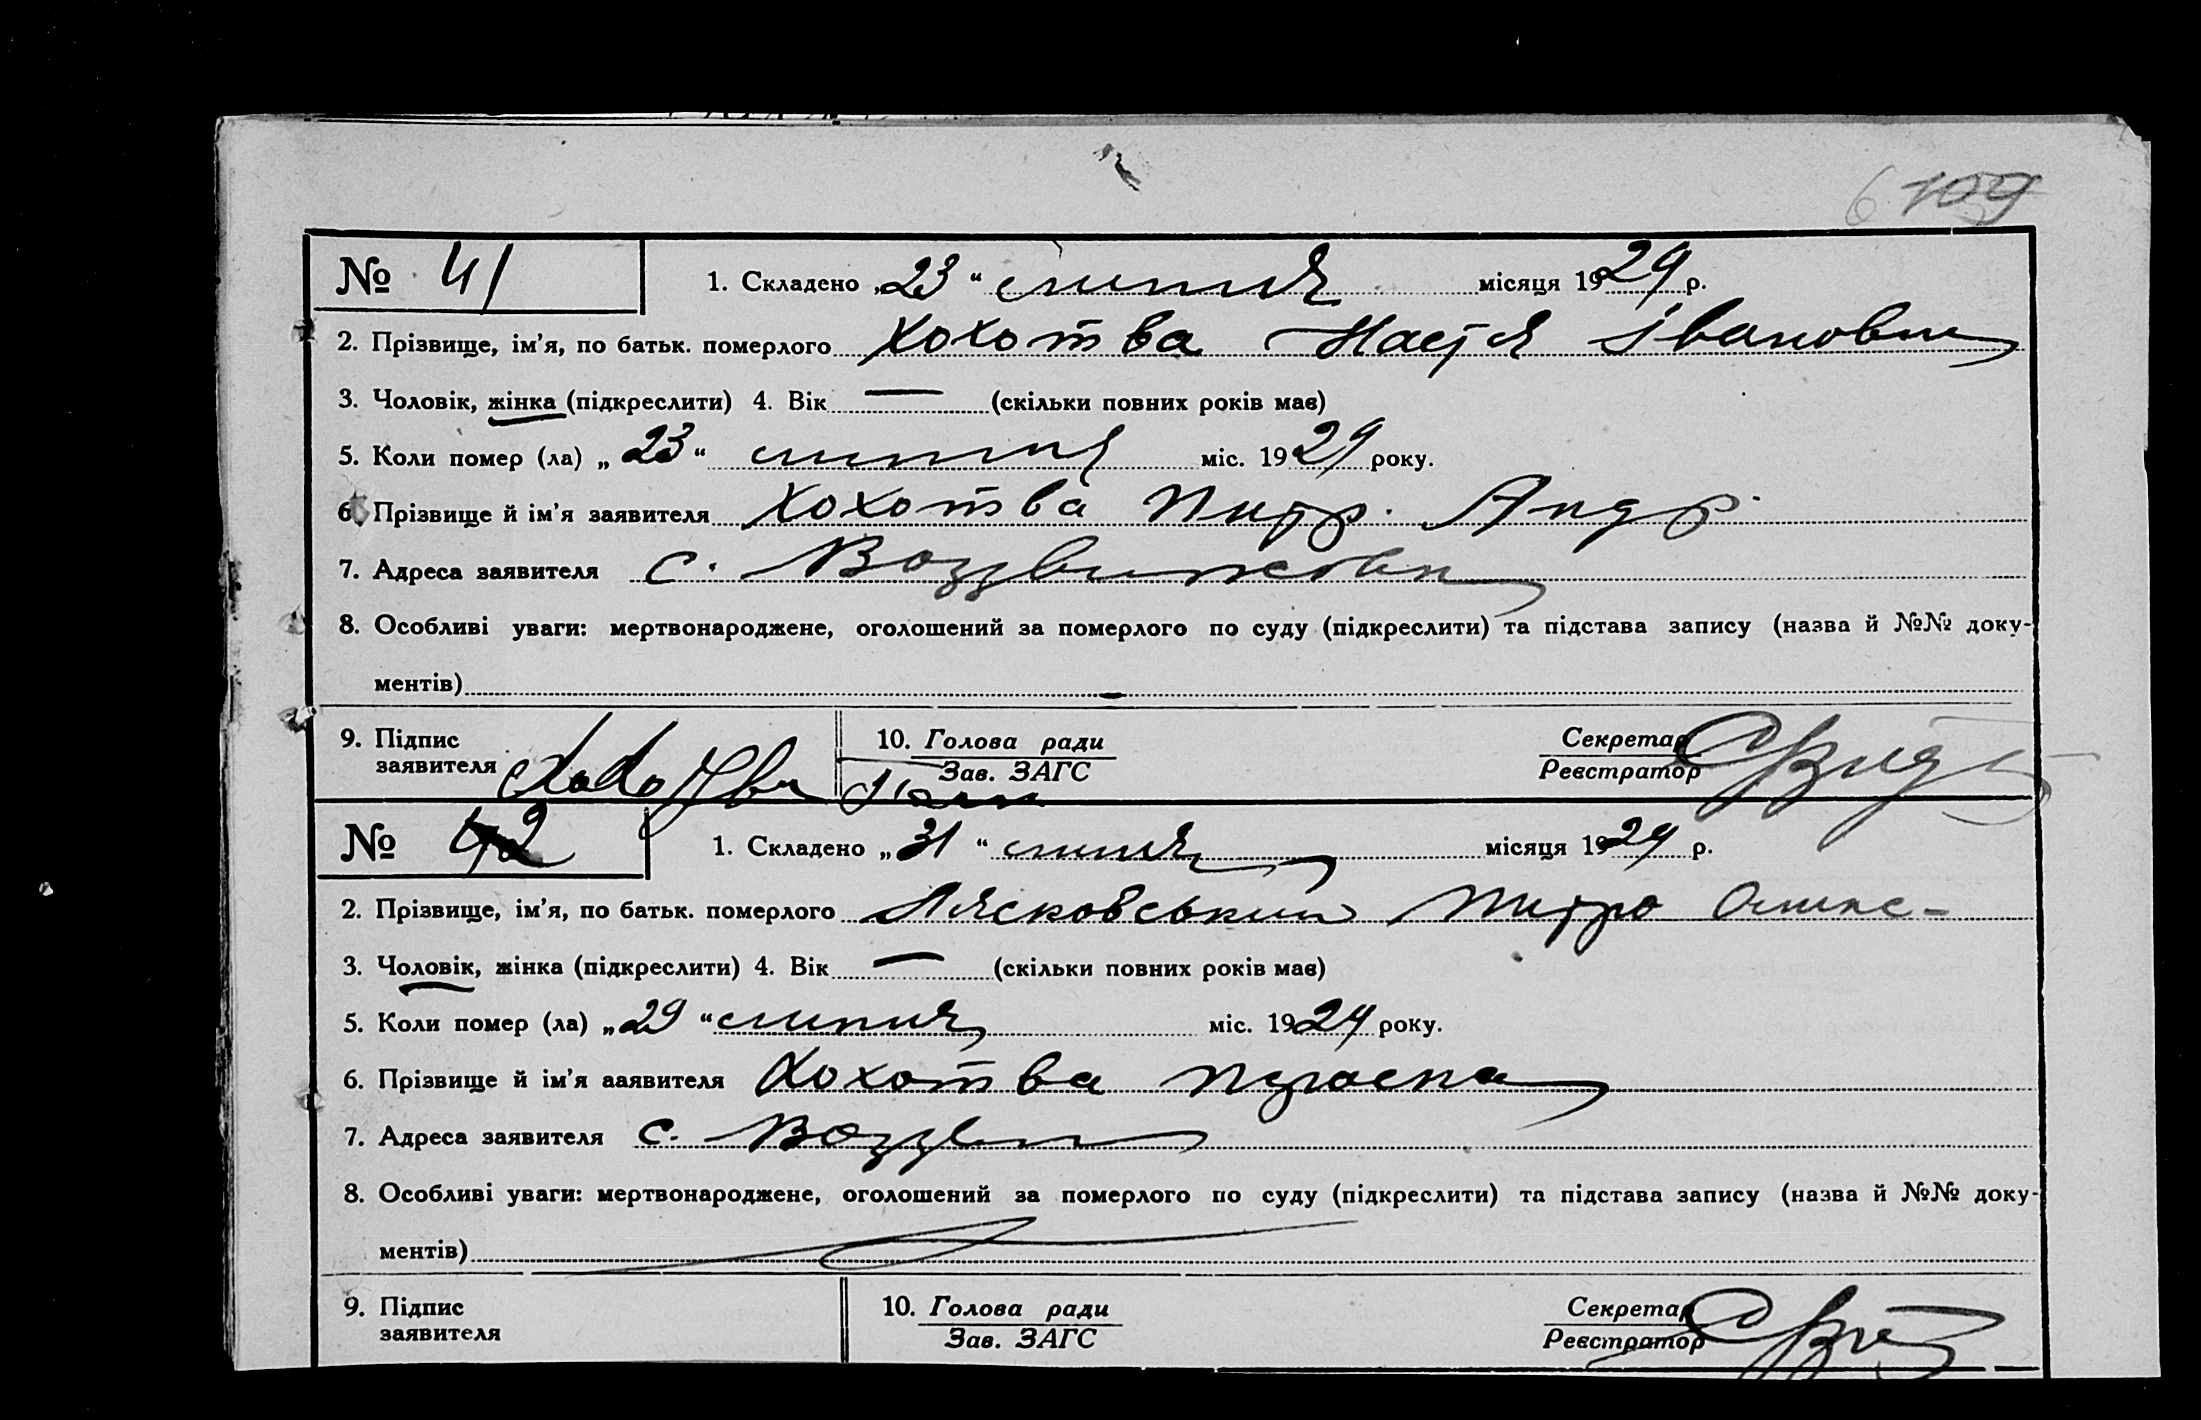 6 109
№ 41 1. Складено „23“ липня місяця 1929 р.
2. Прізвище, ім’я, по батьк. померлого Хохотва Настя Івановна
3. Чоловік, жінка (підкреслити) 4. Вік — (скільки повних років має)
5. Коли помер (ла) „23“ липня міс. 1929 року.
6. Прізвище й ім’я заявителя Хохотва Митр. Андр.
7. Адреса заявителя с. Воздвиженвка
8. Особливі уваги: мертвонароджене, оголошений за померлого по суду (підкреслити) та підстава запису (назва й №№ доку-
ментів) —
9. Підпис 10. Голова ради Секретар
заявителя Хохотва Зав. ЗАГС Реєстратор
№ 42 1. Складено „31“ липня місяця 1929 р.
2. Прізвище, ім’я, по батьк. померлого Лясковський Митро Олекс-
3. Чоловік, жінка (підкреслити) 4. Вік — (скільки повних років має)
5. Коли помер (ла) „29“ липня міс. 1929 року.
6. Прізвище й ім’я ааявителя Хохотва
7. Адреса заявителя с. Воздвиж
8. Особливі уваги: мертвонароджене, оголошений за померлого по суду (підкреслити) та підстава запису (назва й №№ доку-
ментів)
9. Підпис 10. Голова ради Секретар
заявителя Зав. ЗАГС Реєстратор